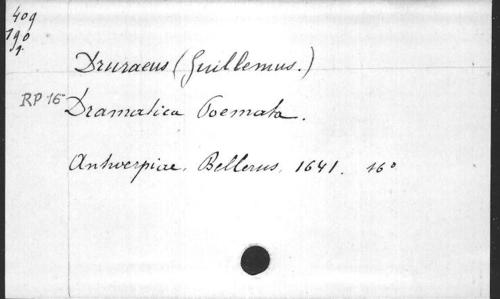 409
190
A.
Druraeus (Guillemus.)
RP 15
Dramatica Poemata.
Antwerpiae, Bellerus, 1641. 16°